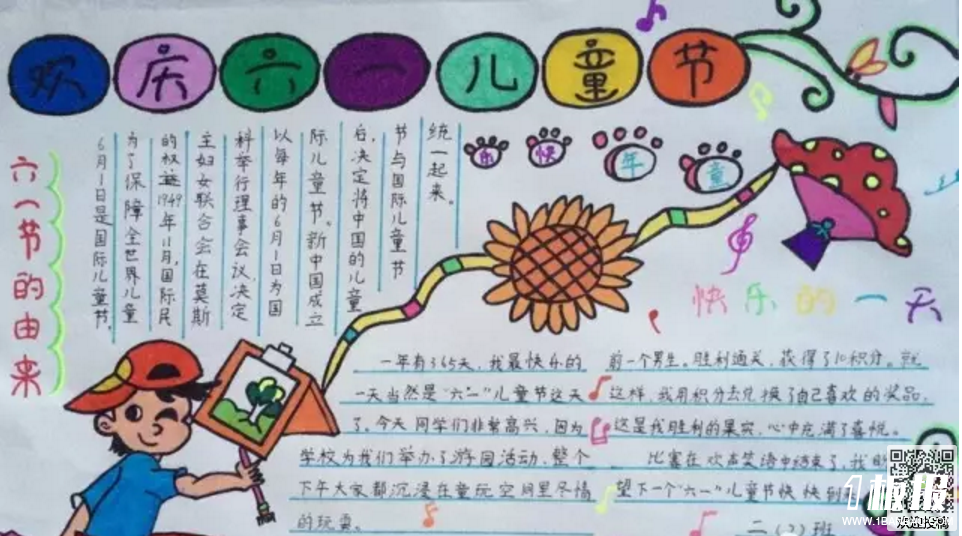 欢庆六一儿童节
六一节的由来
6月1日是国际儿童节。
为了保障全世界儿童
的权益1949年11月,国际民
主妇女联合会在莫斯
科举行理事会议,决定
以每年的6月1日为国
际儿童节。新中国成立
后,决定将中国的儿童
节与国际儿童节
统一起来。
乐快年童
快乐的一天
一年有365天,我最快乐的
一天当然是“六一”儿童节这天
了。今天同学们非常高兴,因为
学校为我们举办了游园活动,整个
下午大家都沉浸在童玩空间里尽情
的玩耍。
前一个男生。胜利通关,获得了10积分。就
这样,我用积分去兑换了自己喜欢的奖品,
这是我胜利的果实,心中充满了喜悦。
比赛在欢声笑语中结束了,我
望下一个“六一”儿童节快快到
二(2)班
1板报
WWW.1BANBAO.COM